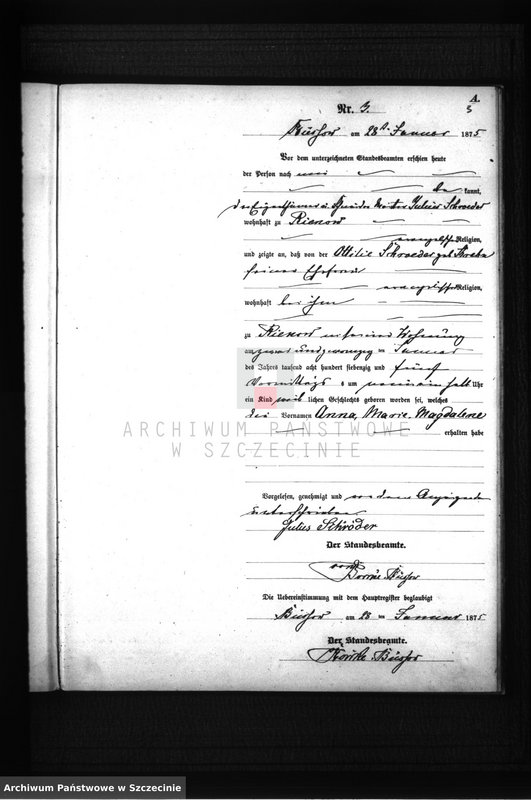 A.
Nr. 3.
am 28ten Januar 1875
Vor dem unterzeichneten Standesbeamten erschien heute
der Person nach
be kannt,
der Eigenthümer u. Julius Schroeder
wohnhaft zu Rienow
evangelischer Religion,
und zeigte an, daß von der Ottilie Schroeder geb.
seiner Ehefrau
evangelischer Religion,
wohnhaft bei ihm
zu Rienow in seiner Wohnung
am zwei und zwanzig ten Januar
des Jahres tausend acht hundert siebenzig und fünf
Vormittags um neun ein halb Uhr
ein Kind weib lichen Geschlechts geboren worden sei, welches
die Vornamen Anna, Marie, Magdalene
erhalten habe
ARCHIWUM PAŃSTWOWE
W SZCZECINIE
Vorgelesen, genehmigt und von dem Anzeigenden
unterschrieben
Julius Schröder
Der Standesbeamte.
Die Uebereinstimmung mit dem Hauptregister beglaubigt
am 28 ten Januar 1875
Der Standesbeamte.
Archiwum Państwowe w Szczecinie